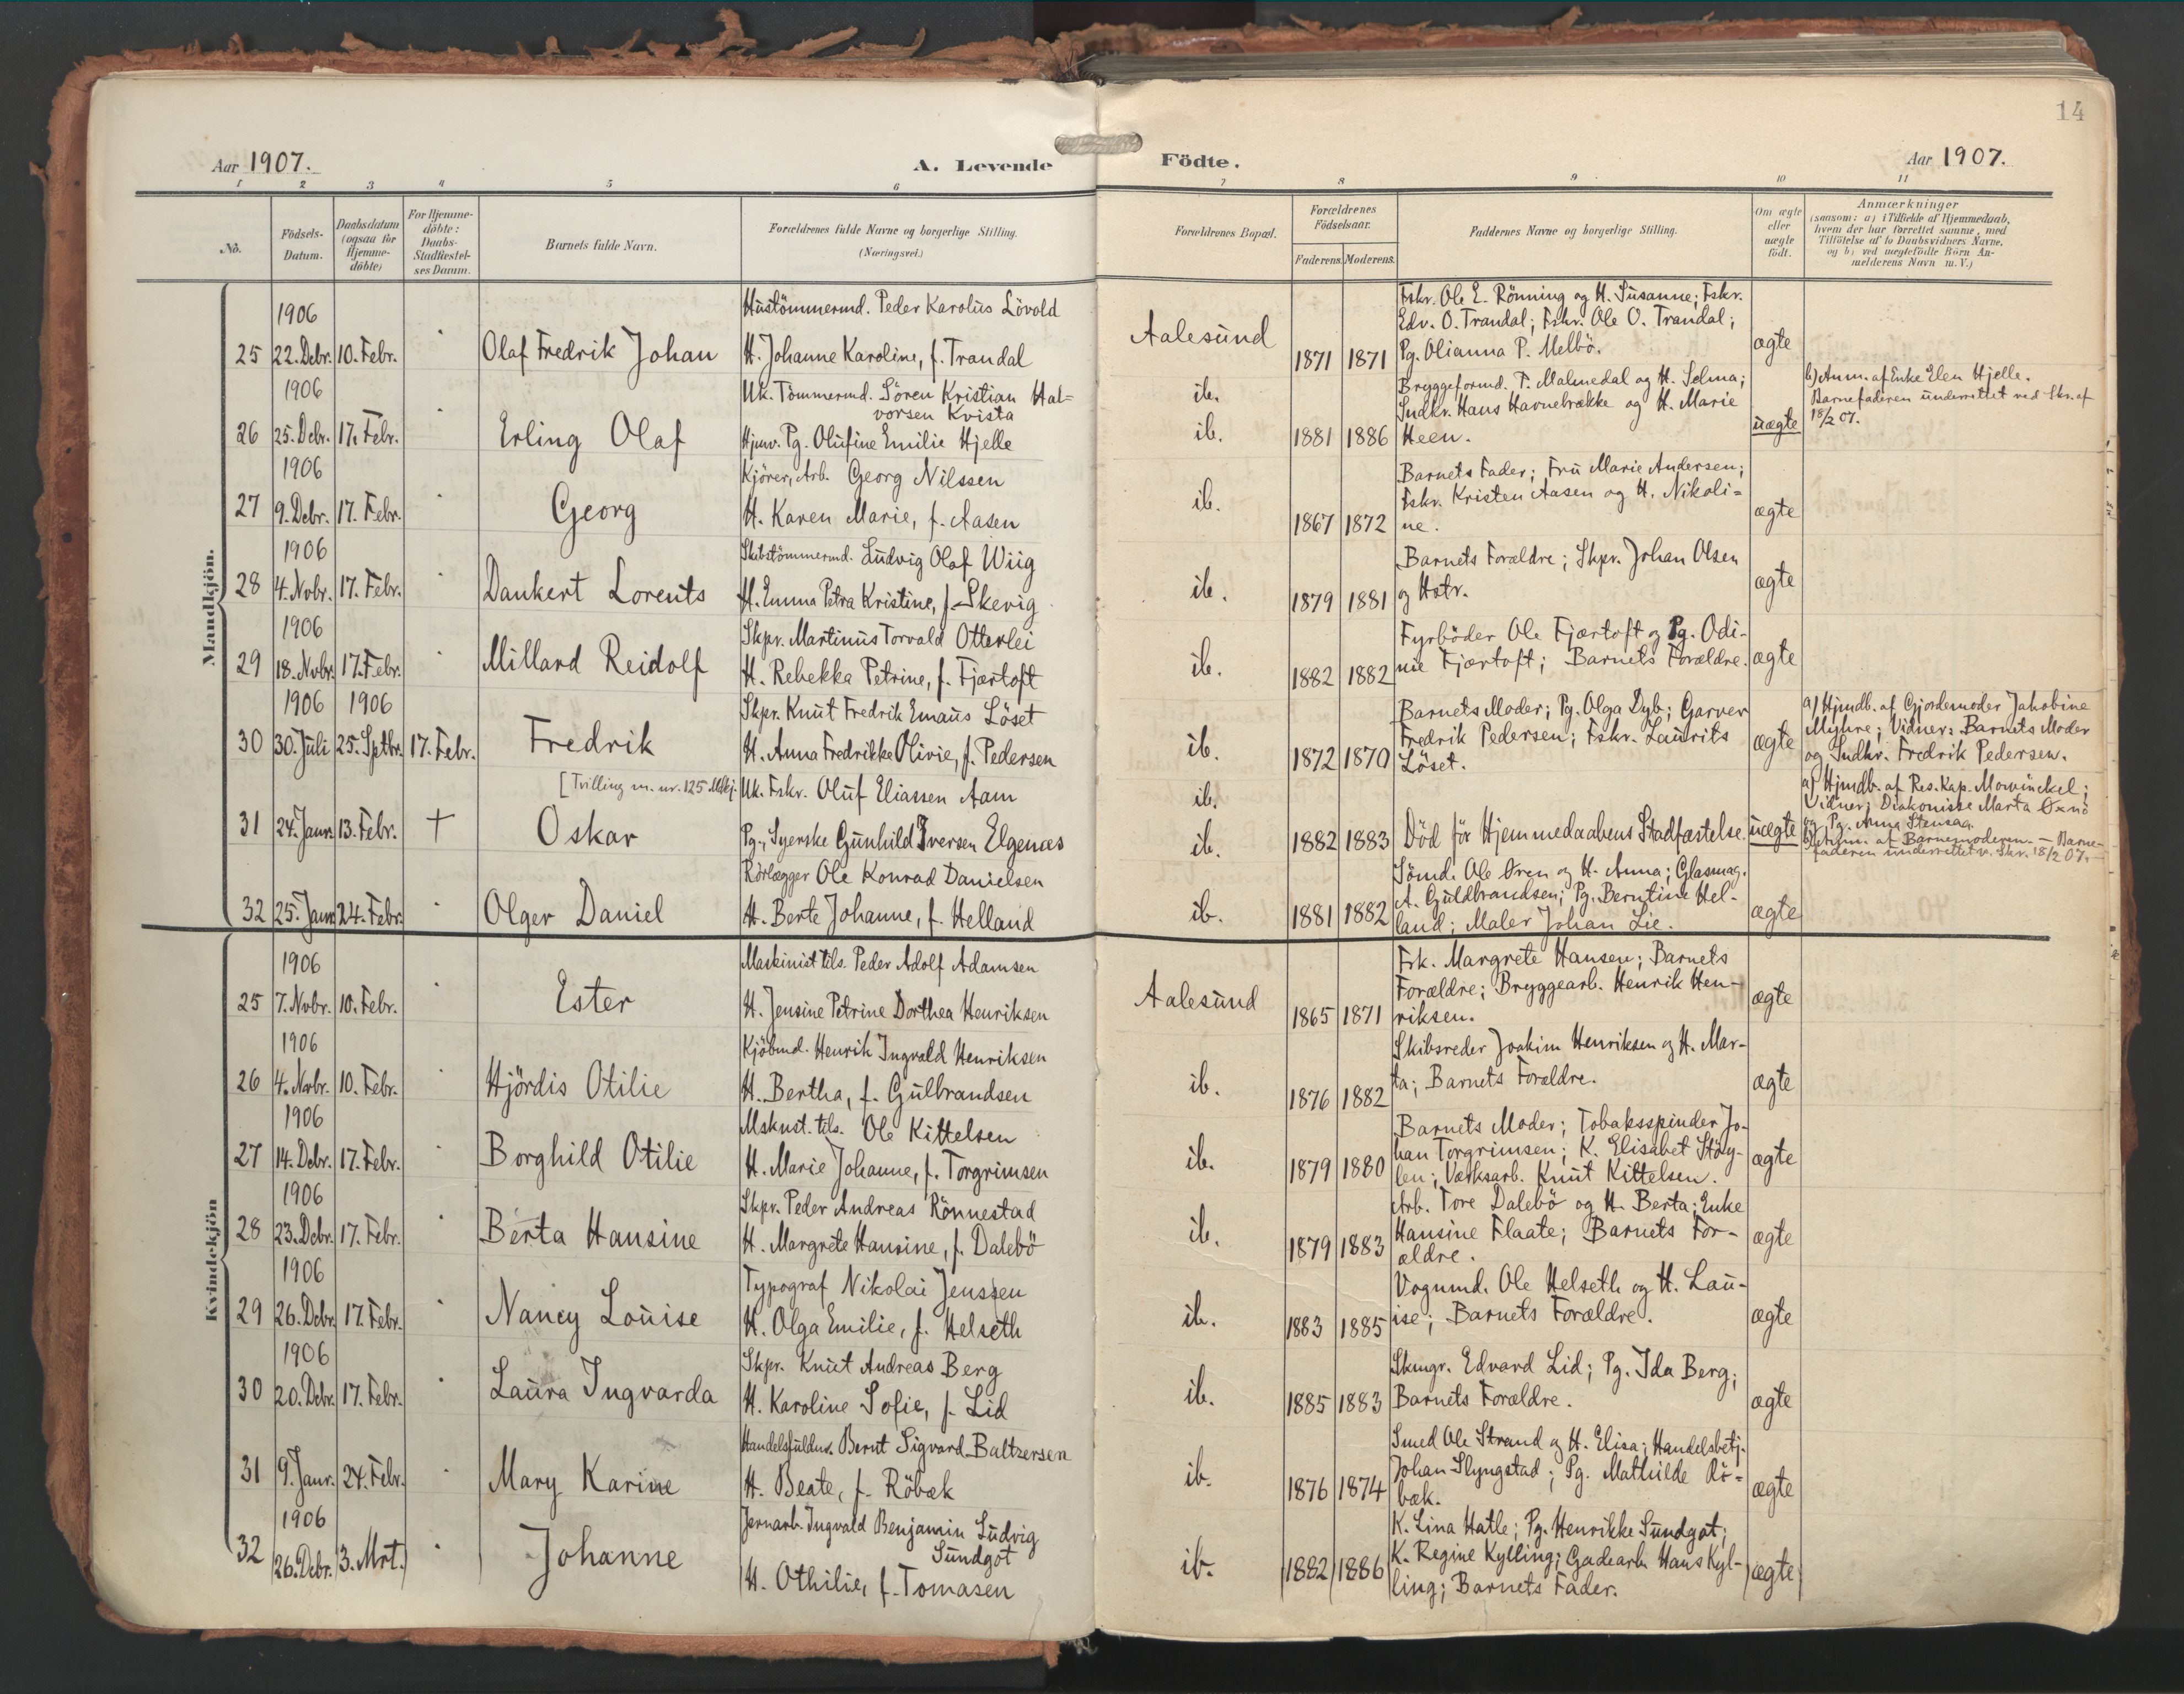 14
Aar 1907.
A. Levende Födte.
Aar 1907.
1 2 3 4 5 6 7 8 9 10 11
No.
Födsels-Datum.
Daabsdatum (ogsaa for Hjemme-döbte)
For Hjemme-döbte: Daabs-Stadfæstel-ses Datum.
Barnets fulde Navn.
Forældrenes fulde Navne og borgerlige Stilling. (Næringsvei.)
Forældrenes Bopæl.
Forældrenes Födselsaar.
Faderens. Moderens.
Faddernes Navne og borgerlige Stilling.
Om ægte eller uægte födt.
Anmærkninger (saasom: a) i Tilfælde af Hjemmedaab, hvem der har forrettet samme, med Tilföielse af to Daabsvidners Navne, og b) ved uægtefödte Börn An-melderens Navn m.V.)
Mandkjön.
25 1906 22. Debr. 10. Febr. Olaf Fredrik Johan
Hustömmermd. Peder Karolus Lövold
H. Johanne Karoline, f. Trandal
Aalesund 1871 1871
Fskr. Ole E. Rönning og H. Susanne; Fskr.
Edv. O. Trandal; Fskr. Ole O. Trandal;
Pg. Olianna P. Melbö.
ægte
26 1906 25. Debr. 17. Febr. Erling Olaf
Uk. Tömmermd. Sören Kristian Hal-
vorsen Kvista
Hjmv. Pg. Olufine Emilie Hjelle
ib.
ib. 1881 1886
Bryggeformd. P. Malmedal og H. Selma;
Indkr. Hans Havnebrække og H. Marie
Heen.
uægte
b) Anm. af Enke Elen Hjelle.
Barnefaderen underrettet ved Skr. af
18/2 07.
27 1906 9. Debr. 17. Febr. Georg
Kjörer, Arb. Georg Nilssen
H. Karen Marie, f. Aasen
ib. 1867 1872
Barnets Fader; Fru Marie Andersen;
Fskr. Kristen Aasen og H. Nikoli=
ne.
ægte
28 1906 4. Novbr. 17. Febr. Dankert Lorents
Skibstömmermd. Ludvig Olaf Wiig
H. Emma Petra Kristine, f. Skevig
ib. 1879 1881
Barnets Forældre; Skpr. Johan Olsen
og Hstr.
ægte
29 1906 18. Novbr. 17. Febr. Millard Reidolf
Skpr. Martinus Torvald Otterlei
H. Rebekka Petrine, f. Fjærtoft
ib. 1882 1882
Fyrböder Ole Fjærtoft og Pg. Odi-
nie Fjærtoft; Barnets Forældre.
ægte
30 1906 30. Juli 1906 25. Sptbr. 17. Febr. Fredrik
Skpr. Knut Fredrik Emaus Löset
H. Anna Fredrikke Olivie, f. Pedersen
ib. 1872 1870
Barnets Moder; Pg. Olga Dyb; Garver
Fredrik Pedersen; Fskr. Laurits
Löset.
ægte
a) Hjmdb. af Gjordemoder Jakobine
Myhre; Vidner: Barnets Moder
og Indkr. Fredrik Pedersen.
[Tvilling m. nr. 125 Mdkj.
31 24. Janr. 13. Febr. † Oskar
Uk. Fskr. Oluf Eliassen Aam
Pg., Syerske Gunhild Iversen Elgenæs
ib.
ib. 1882 1883
Död för Hjemmedaabens Stadfæstelse.
uægte
a) Hjmdb. af Res. Kap. Mowinckel;
Vidner; Diakonisse Marta Oxnö
og Pg. Anna Stensaa.
b) Anm. af Barnemoderen. — Barne-
faderen underrettet v. Skr. 18/2 07.
32 25. Janr. 24. Febr. Olger Daniel
Rörlægger Ole Konrad Danielsen
H. Berte Johanne, f. Helland
ib. 1881 1882
Sömd. Ole Øren og H. Anna; Glasmag.
A. Guldbrandsen; Pg. Berntine Hel-
land; Maler Johan Lie.
ægte
Kvindekjön
25 1906 7. Novbr. 10. Febr. Ester
Maskinist tils. Peder Adolf Adamsen
H. Jensine Petrine Dorthea Henriksen
Aalesund 1865 1871
Frk. Margrete Hansen; Barnets
Forældre; Bryggearb. Henrik Hen-
riksen.
ægte
26 1906 4. Novbr. 10. Febr. Hjördis Otilie
Kjöbmd. Henrik Ingvald Henriksen
H. Bertha, f. Gulbrandsen
ib. 1876 1882
Skibsreder Joakim Henriksen og H. Mar-
ta; Barnets Forældre.
ægte
27 1906 14. Debr. 17. Febr. Borghild Otilie
Msknst. tils. Ole Kittelsen
H. Marie Johanne, f. Torgrimsen
ib. 1879 1880
Barnets Moder; Tobaksspinder Jo-
han Torgrimsen; K. Elisabet Stöy-
len; Værksarb. Knut Kittelsen.
ægte
28 1906 23. Debr. 17. Febr. Berta Hansine
Skpr. Peder Andreas Rönnestad
H. Margrete Hansine, f. Dalebö
ib. 1879 1883
Arb. Tore Dalebö og H. Berta; Enke
Hansine Flaate; Barnets For-
ældre.
ægte
29 1906 26. Debr. 17. Febr. Nancy Louise
Typograf Nikolai Jenssen
H. Olga Emilie, f. Helseth
ib. 1883 1885
Vognmd. Ole Helseth og H. Lau-
ise; Barnets Forældre.
ægte
30 1906 20. Debr. 17. Febr. Laura Ingvarda
Skpr. Knut Andreas Berg
H. Karoline Sofie, f. Lid
ib. 1885 1883
Skmgr. Edvard Lid; Pg. Ida Berg;
Barnets Forældre.
ægte
31 9. Janr. 24. Febr. Mary Karine
Handelsfuldm. Bernt Sigvard Baltzersen
H. Beate, f. Röbæk
ib. 1876 1874
Smed Ole Strand og H. Elisa; Handelsbetj.
Johan Slyngstad; Pg. Mathilde Rö-
bæk.
ægte
32 1906 26. Debr. 3. Mrt. Johanne
Jernarb. Ingvald Benjamin Ludvig
Sundgot
H. Othilie, f. Tomasen
ib. 1882 1886
K. Lina Hatle; Pg. Henrikke Sundgot;
K. Regine Kylling; Gadearb. Hans Kyl-
ling; Barnets Fader.
ægte